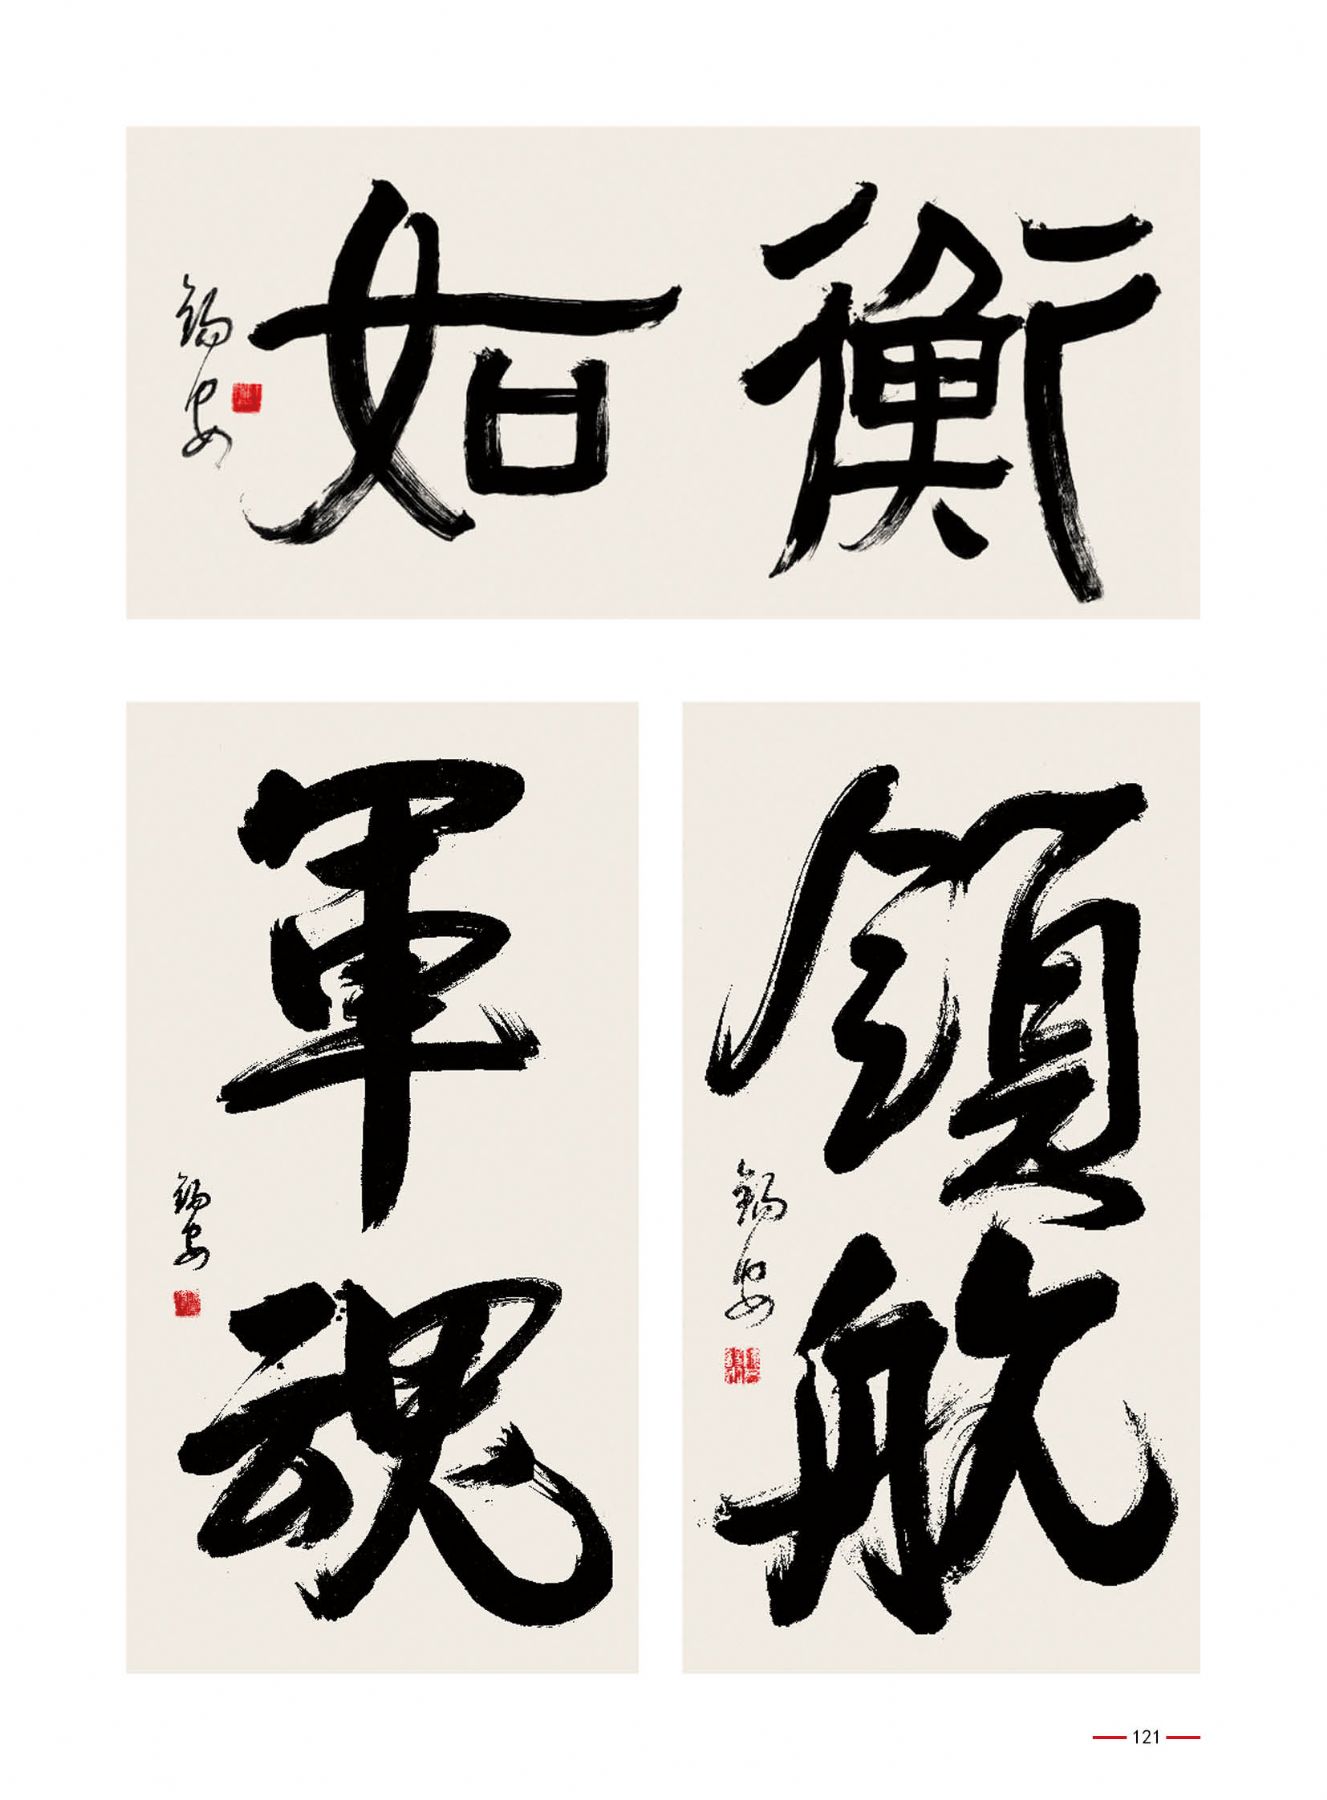 衡如
錫安
領航
錫安
軍魂
錫安
121